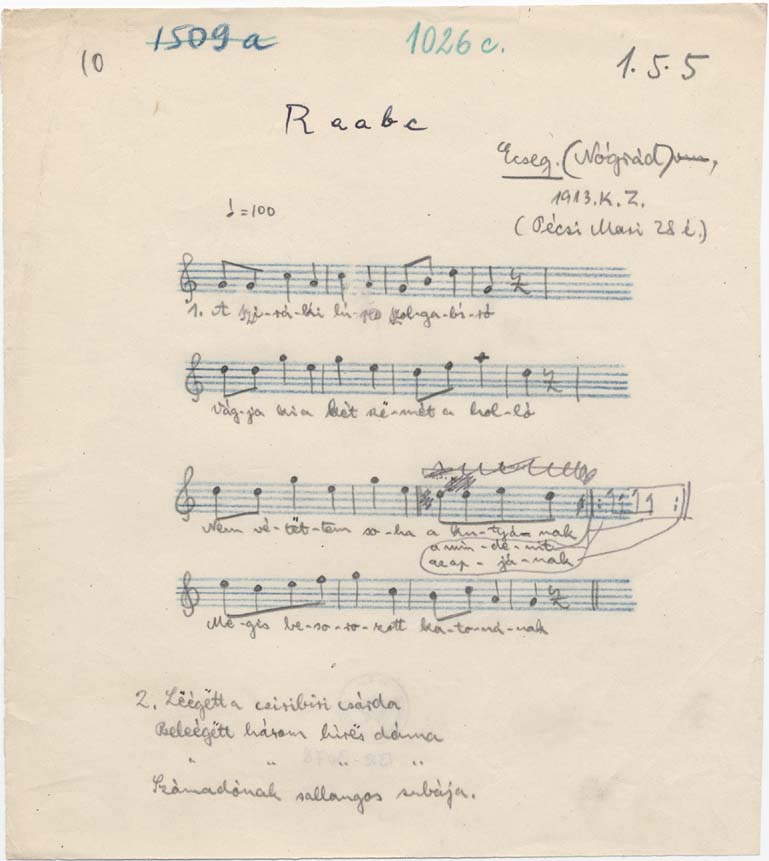 10
1509a
1026c.
1.5.5
Raabc
Ecseg. (Nógrád)
1913. K. Z.
(Pécsi Mari 28 é.)
♩=100
1. A szi-rá-ki hí-res szol-ga-bí-ró
Vág-ja ki a két sze-mét a hol-ló
Nem vé-tët-tem so-ha a ku-tyá-nak
a min-de-nit
az ap-já-nak
Mé-gis be-so-ro-zott ka-to-ná-nak
2. Lëégëtt a csiribiri csárda
Beleégëtt három hírës dáma
" " " "
Számadónak sallangos subája.